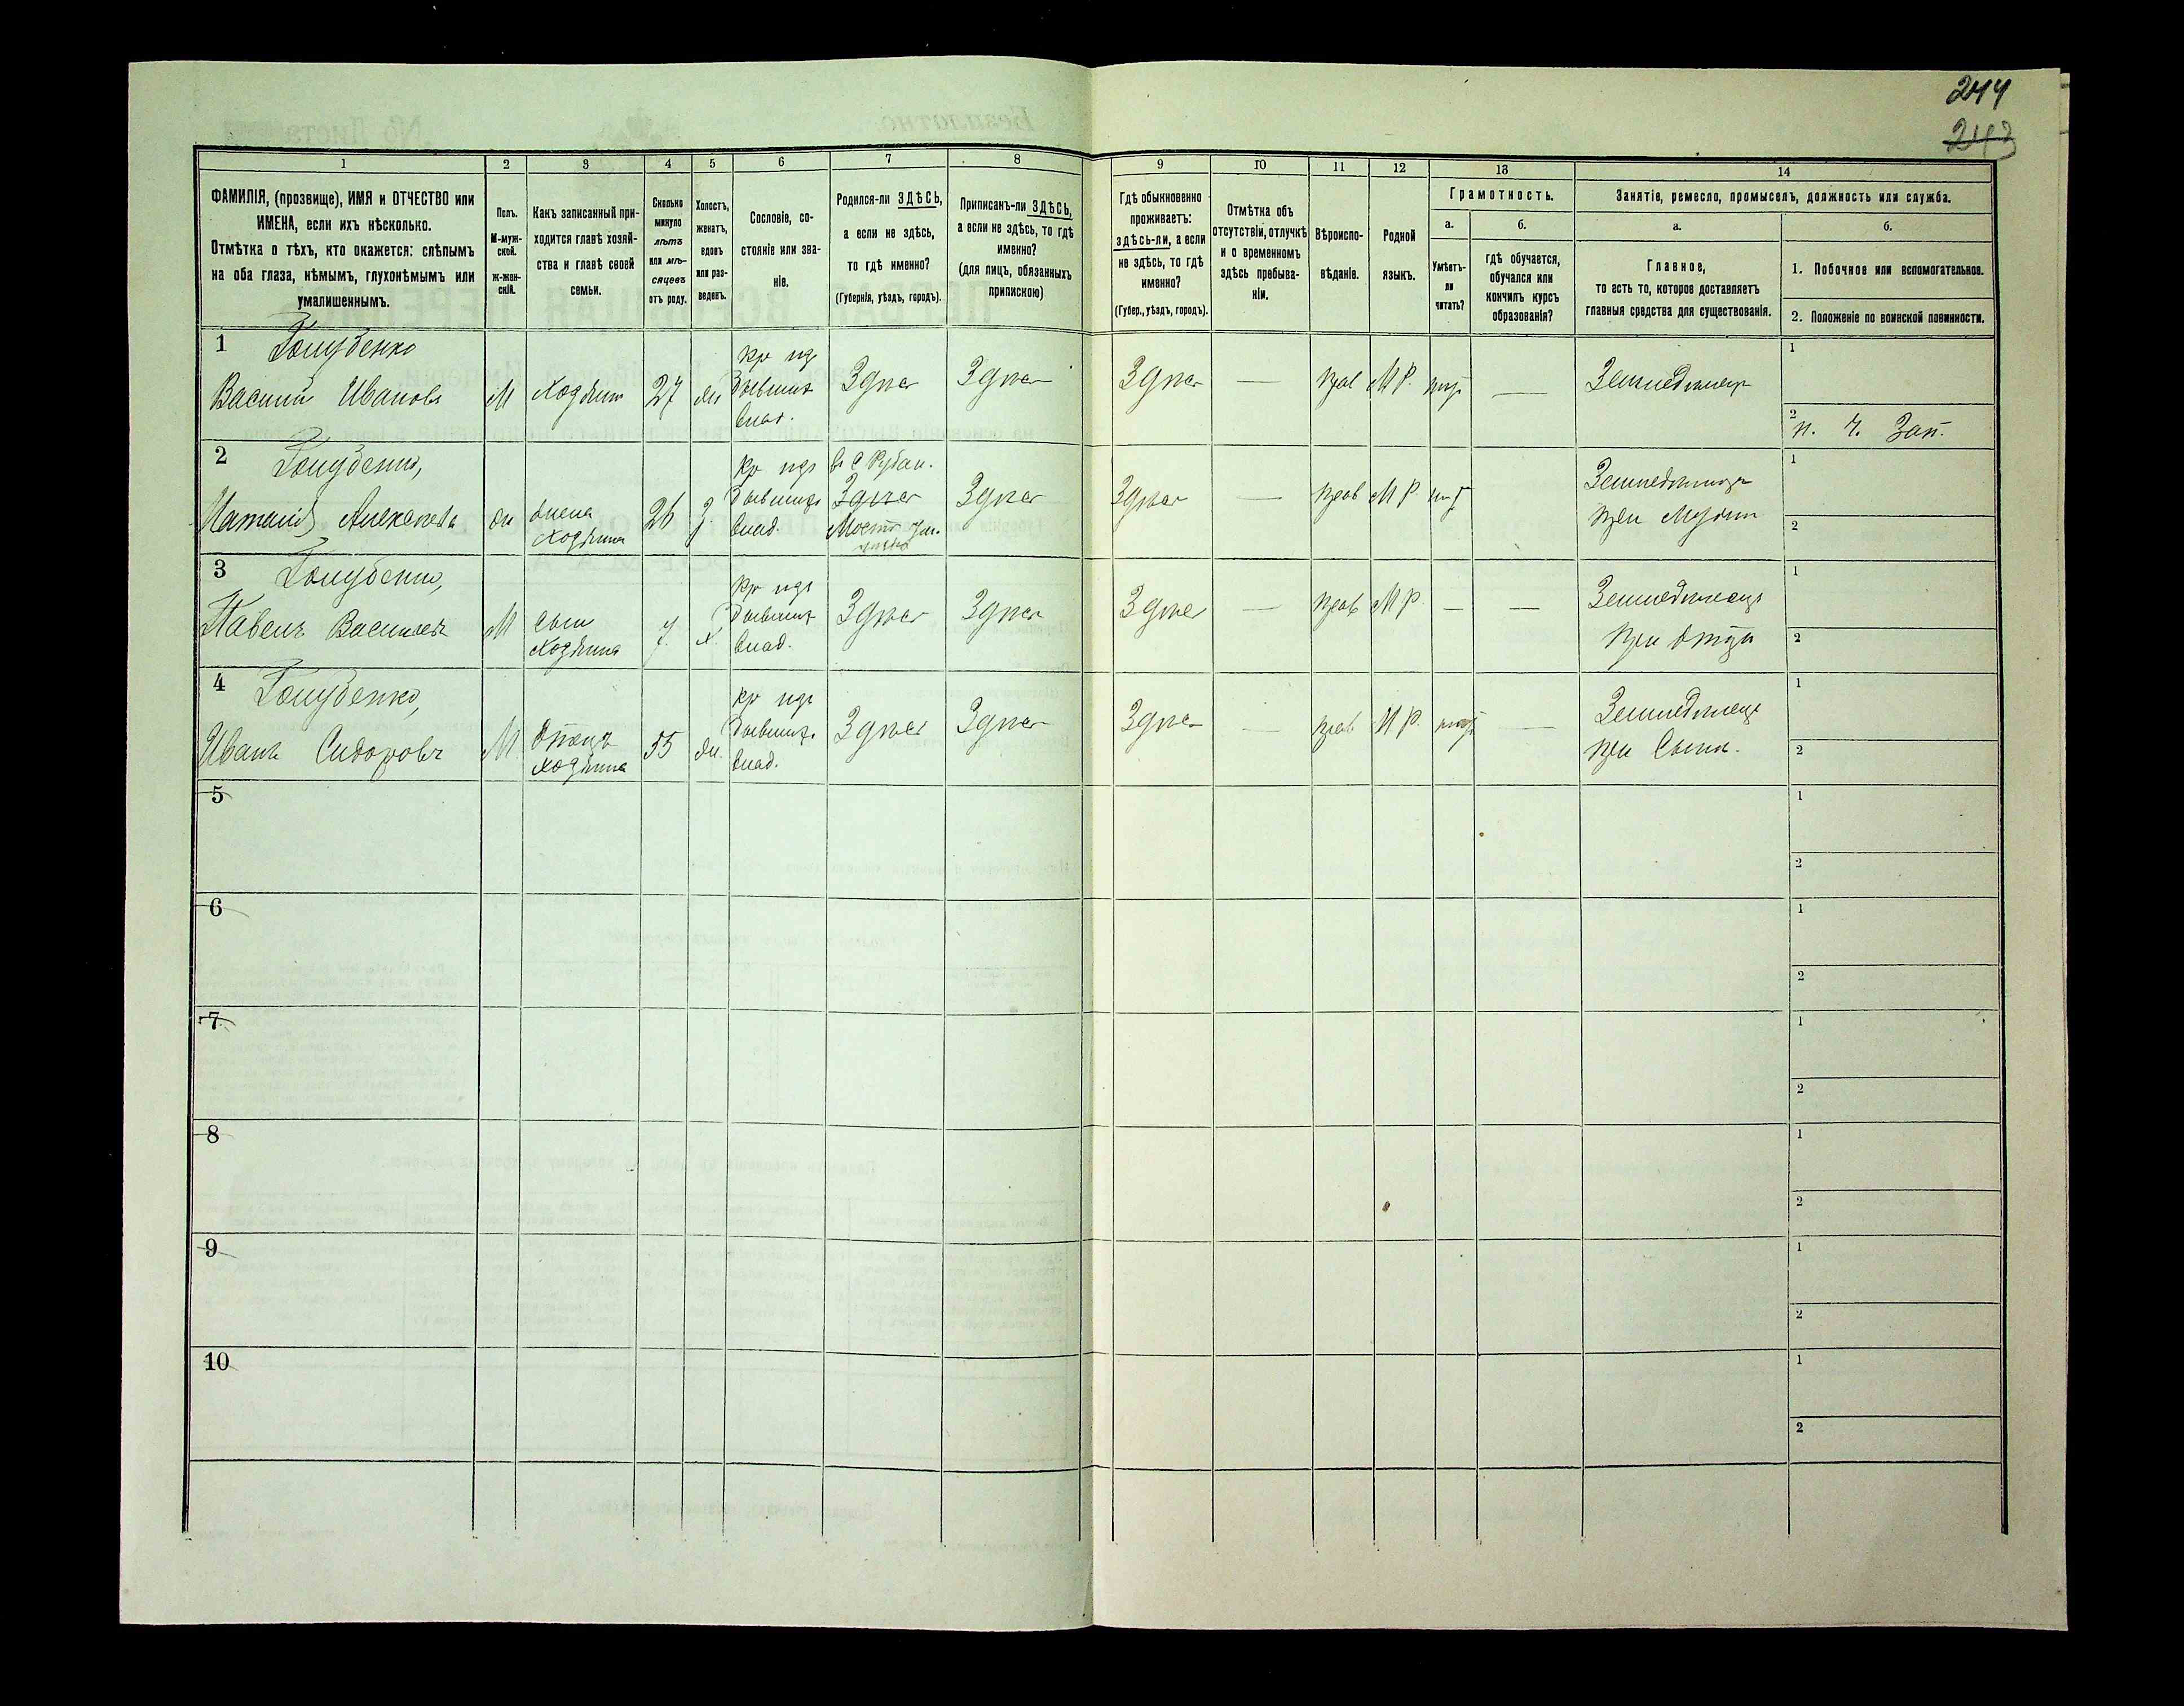 244
243
1
2
3
4
5
6
7
8
9
10
11
12
13
14
ФАМИЛІЯ, (прозвище), ИМЯ и ОТЧЕСТВО или
ИМЕНА, если ихъ нѣсколько.
Отмѣтка о тѣхъ, кто окажется: слѣпымъ
на оба глаза, нѣмымъ, глухонѣмымъ или
умалишеннымъ.
Полъ.
М-муж-
ской.
ж-жен-
скій.
Какъ записанный при-
ходится главѣ хозяй-
ства и главѣ своей
семьи.
Сколько
минуло
лѣтъ
или мѣ-
сяцевъ
отъ роду.
Холостъ,
женатъ,
вдовъ
или раз-
веденъ.
Сословіе, со-
стояніе или зва-
ніе.
Родился-ли ЗДѢСЬ,
а если не здѣсь,
то гдѣ именно?
(Губернія, уѣздъ, городъ).
Приписанъ-ли ЗДѢСЬ,
а если не здѣсь, то гдѣ
именно?
(для лицъ, обязанныхъ
припискою)
Гдѣ обыкновенно
проживаетъ:
здѣсь-ли, а если
не здѣсь, то гдѣ
именно?
(Губер., уѣздъ, городъ).
Отмѣтка объ
отсутствіи, отлучкѣ
и о временномъ
здѣсь пребыва-
ніи.
Вѣроиспо-
вѣданіе.
Родной
языкъ.
Грамотность.
а.
б.
Умѣетъ-
ли
читать?
гдѣ обучается,
обучался или
кончилъ курсъ
образованія?
Занятіе, ремесло, промыселъ, должность или служба.
а.
б.
Главное,
то есть то, которое доставляетъ
главныя средства для существованія.
1. Побочное или вспомогательное.
2. Положеніе по воинской повинности.
1 Голубенко
Василій Ивановъ
М
Хозяинъ
27
жн
Кр изъ
бывших
влад.
Здѣсь
Здѣсь
Здѣсь
—
прав
М Р.
нѣтъ
—
Земледѣлецъ
1
2
п. ч. Зап.
2 Голубенко,
Наталія Алексѣева
жн
жена
хозяина
26
З
Кр изъ
бывшихъ
влад.
в с Рубан.
Здѣсь
Здѣсь
Здѣсь
—
прав
М Р.
нѣтъ
Земледѣлица
при Мужѣ
1
2
3 Голубенко,
Павелъ Васильевъ
М
сынъ
хозяина
7.
х.
Кр изъ
бывших
влад.
Здѣсь
Здѣсь
Здѣсь
—
прав
М Р.
—
—
Земледѣлецъ
при Отцѣ
1
2
4 Голубенко,
Иванъ Сидоровъ
М
отецъ
хозяина
55
жн.
Кр изъ
бывших
влад.
Здѣсь
Здѣсь
Здѣсь
—
прав
М Р.
нѣтъ
—
Земледѣлецъ
при Сынѣ.
1
2
5
1
2
6
1
2
7
1
2
8
1
2
9
1
2
10
1
2